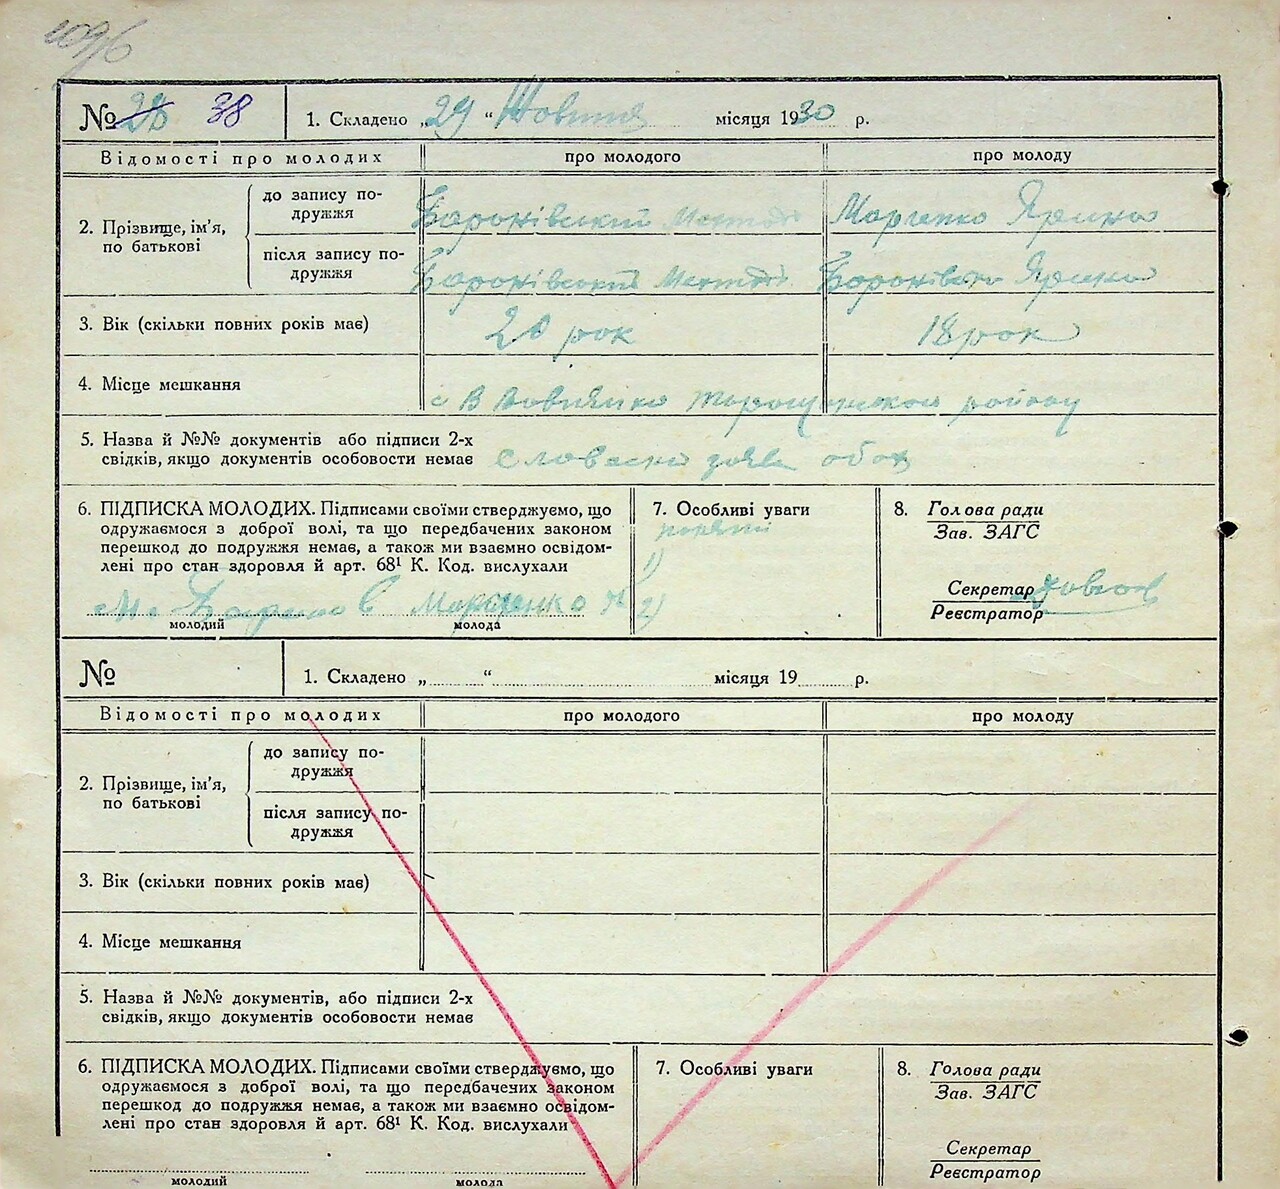 № 28 38
1. Складено „29“ Жовтня місяця 1930 р.
Відомості про молодих
про молодого
про молоду
2. Прізвище, ім'я, по батькові
до запису по-
дружжя
Бароківський
Марченко Ярина
після запису по-
дружжя
Бароківський
Ярина
3. Вік (скільки повних років має)
20 рок
18 рок
4. Місце мешкання
с В Вовнянка Таращанського району
5. Назва й №№ документів або підписи 2-х
свідків, якщо документів особовости немає
Словесна заява обох
6. ПІДПИСКА МОЛОДИХ. Підписами своїми стверджуємо, що
одружаємося з доброї волі, та що передбачених законом
перешкод до подружжя немає, а також ми взаємно освідом-
лені про стан здоровля й арт. 68¹ К. Код. вислухали
М. Марченко Я
молодий
молода
7. Особливі уваги
1)
2)
8. Голова ради
Зав. ЗАГС
Секретар
Реєстратор
№
1. Складено „ “ місяця 19 р.
Відомості про молодих
про молодого
про молоду
2. Прізвище, ім'я,
по батькові
до запису по-
дружжя
після запису по-
дружжя
3. Вік (скільки повних років має)
4. Місце мешкання
5. Назва й №№ документів, або підписи 2-х
свідків, якщо документів особовости немає
6. ПІДПИСКА МОЛОДИХ. Підписами своїми стверджуємо, що
одружаємося з доброї волі, та що передбачених законом
перешкод до подружжя немає, а також ми взаємно освідом-
лені про стан здоровля й арт. 68¹ К. Код. вислухали
молодий
молода
7. Особливі уваги
8. Голова ради
Зав. ЗАГС
Секретар
Реєстратор